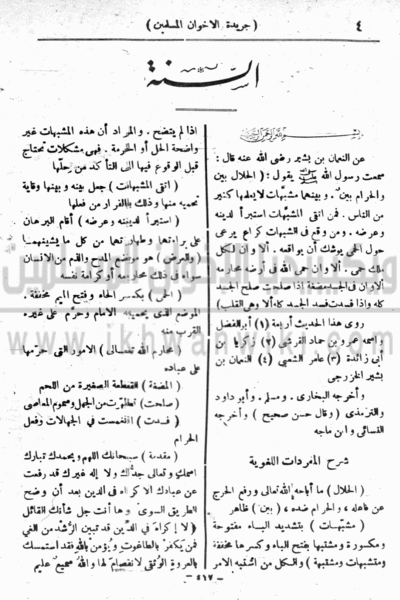 ٤
( جريدة الاخوان المسلمين )
السنة
عن النعمان بن بشير رضى الله عنه قال :
سمعت رسول الله ﷺ يقول : ( الحلال بين
والحرام بين ، وبينهما مشبهات لا يعلمها كثير
من الناس . فمن اتقى المشبّهات استبرأ لدينه
وعرضه . ومن وقع فى الشبهات كراع يرعى
حول الحمى يوشك أن يواقعه . ألا وان لكل
ملك حمى . ألا وان حمى الله فى أرضه محارمه
ألا وان فى الجسد مضغة إذا صلحت صلح الجسد
كله واذا فسدت فسد الجسد كله ألا وهى القلب )
روى هذا الحديث أربعة (١) أبو الفضل
واسمه عمرو بن حماد القرشى (٢) زكريا بن
أبى زائدة (٣) عامر الشعبى (٤) النعمان بن
بشير الخزرجى
وأخرجه البخارى . ومسلم . وأبو داود
والترمذى ( وقال حسن صحيح ) وأخرجه
النسائى وابن ماجه
شرح المفردات اللغوية
( الحلال ) ما أباحه الله تعالى ورفع الحرج
عن فاعله ، والحرام ضده ، ( بين ) ظاهر
( مشبّهات ) بتشديد الباء مفتوحة
ومكسورة و مشتبها بفتح الباء وكسرها مخففة
ومتشبهات ومشتبهة ) والكل من اشتبه الامر
اذا لم يتضح . والمراد أن هذه المشبهات غير
واضحة الحل أو الحرمة . فهى مشكلات تحتاج
قبل الوقوع فيها الى التأكد من حلّها
( اتقى المشبهات ) جعل بينه وبينها وقاية
تحميه منها وذلك بالفرار من فعلها
( استبرأ لدينه وعرضه ) أقام البرهان
على براءتها وطهارتها من كل ما يشينهما
( والعرض ) هو موضع المدح والذم من الانسان
سواء فى ذلك محارمه أو كرامة نفسه
( الحمى ) بكسر الحاء وفتح الميم مخففة .
الموضع الذى يحميه الامام وحرّم على غيره
القرب منه
( محارم الله تعالى ) الامور التى حرّمها
على عباده
( المضغة ) القطعة الصغيرة من اللحم
( صلحت ) تطهّرت من الجهل وهموم المعاصى
( فسدت ) انغمست فى الجهالات وفعل
الحرام
( مقدمة ) سبحانك اللهم وبحمدك تبارك
اسمك وتعالى جدّك ولا إله غيرك قد رفعت
عن عبادك الاكراه فى الدين بعد أن وضح
الطريق السوىّ وها أنت جل شأنك القائل
( لا إكراه فى الدّين قد تبين الرّشد من الغى
فمن يكفر بالطاغوت ويؤمن بالله فقد استمسك
بالعروة الوُثقى لا انفصام لها والله سميع عليم
— ٤١٧ —